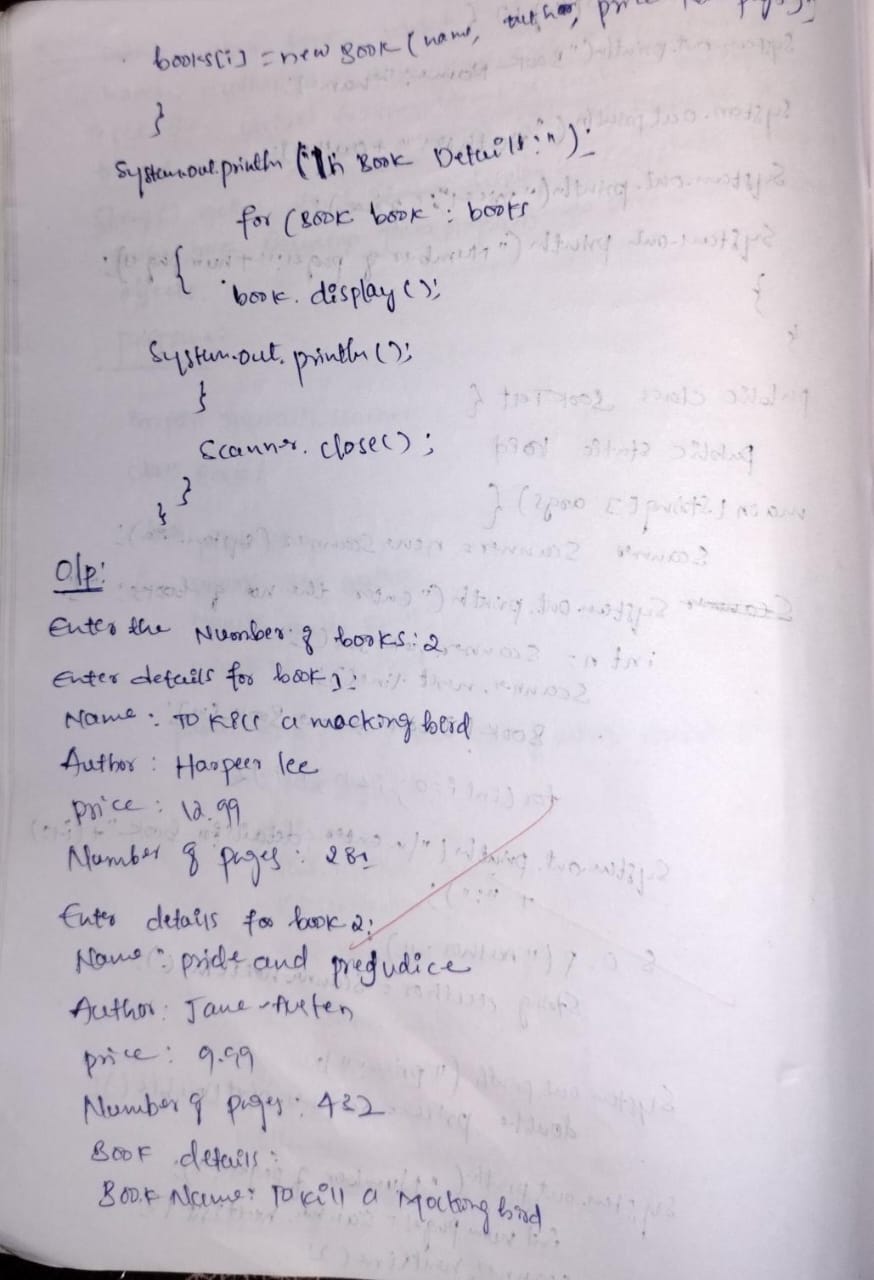 books[i] = new Book (name, author,
}
System.out.println ("\n Book Details:");
for (Book book : books
{
book. display ();
System.out. println ();
}
Scanner. close();
}
}
O/p:
Enter the Number of books: 2
Enter details for book 1:
Name: TO Kill a mocking bird
Author: Harper lee
price: 12.99
Number of pages: 281
Enter details for book 2:
Name: pride and pregudice
Author: Jane Austen
price: 9.99
Number of pages: 432
Book details:
Book Name: To kill a Mocking bird